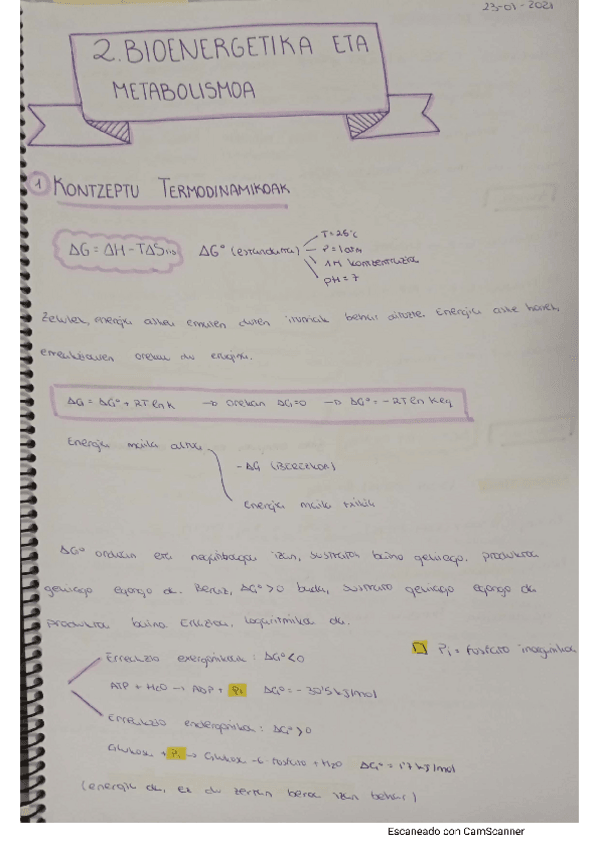 23-01-2021
2. BIOENERGETIKA ETA
METABOLISMOA
1 KONTZEPTU TERMODINAMIKOAK
ΔG = ΔH - TΔS ΔG° (estandarra)
T = 25°C
P = 1 atm
1M kontzentrazioa
pH = 7
Zelulek, energia askea ematen duten iturriak behar dituzte. Energia aske honek,
erreakzioaren orekan du eragina.
ΔG = ΔG° + RT ln K → orekan ΔG = 0 → ΔG° = -RT ln Keq
Energia maila altua
-ΔG (BEREZKOA)
Energia maila txikia
ΔG° orduan eta negatiboagoa izan, substratua baino gehiago. produktua
gehiago egongo da. Beraz, ΔG° > 0 bada, sustratu gehiago egongo da
produktua baino. Erlazioa, logaritmikoa da.
Erreakzio exergonikoak : ΔG° < 0
Pi = fosfato inorganikoa
ATP + H2O → ADP + Pi ΔG° = -30'5 kJ/mol
Erreakzio endergonikoa : ΔG° > 0
Glukosa + Pi → Glukosa -6- fosfato + H2O ΔG° = 17 kJ/mol
(energia da, ez du zertan beroa izan behar)
Escaneado con CamScanner